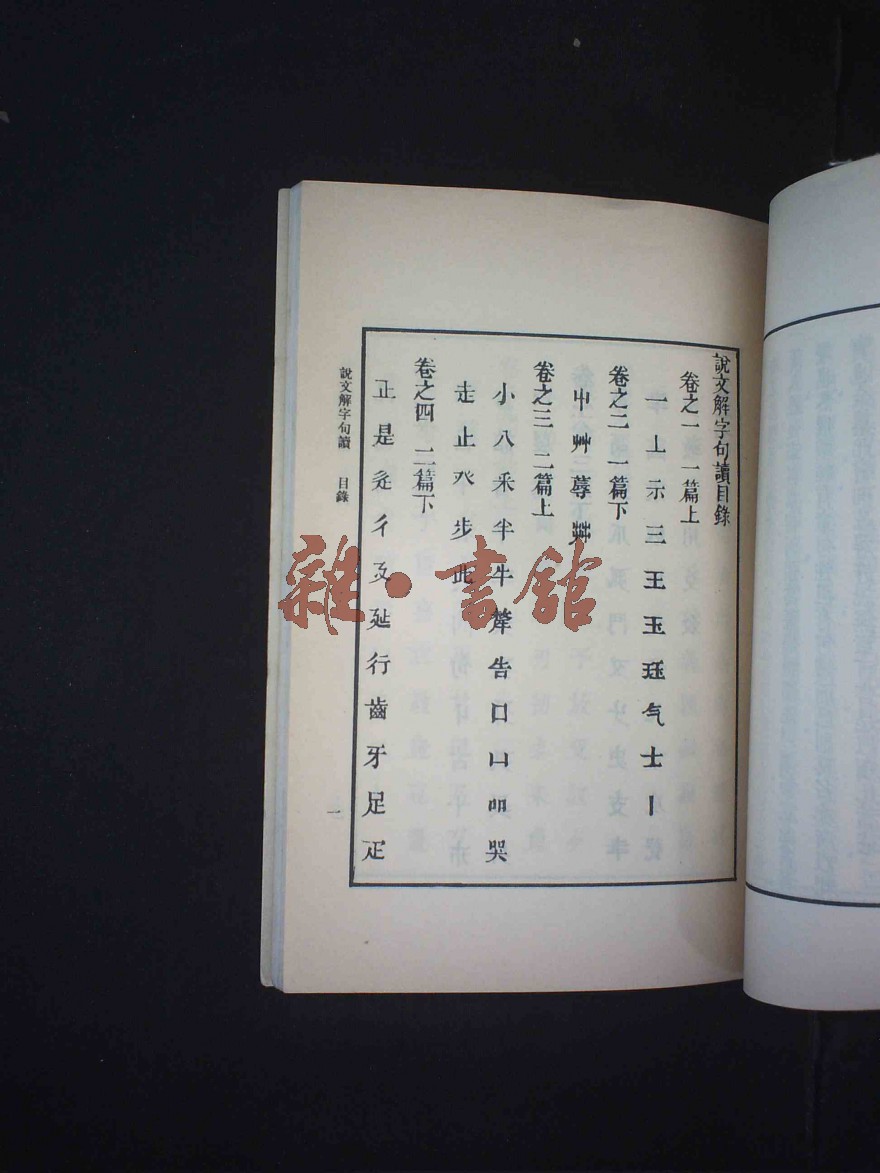 說文解字句讀目錄
卷之一 一篇上
一丄示三王玉珏气士丨
卷之二 一篇下
屮艸蓐茻
卷之三 二篇上
小八釆半牛犛告口凵吅哭
走止癶步此
卷之四 二篇下
正是辵彳廴㢟行齒牙足疋
說文解字句讀 目錄 一
雜·書館